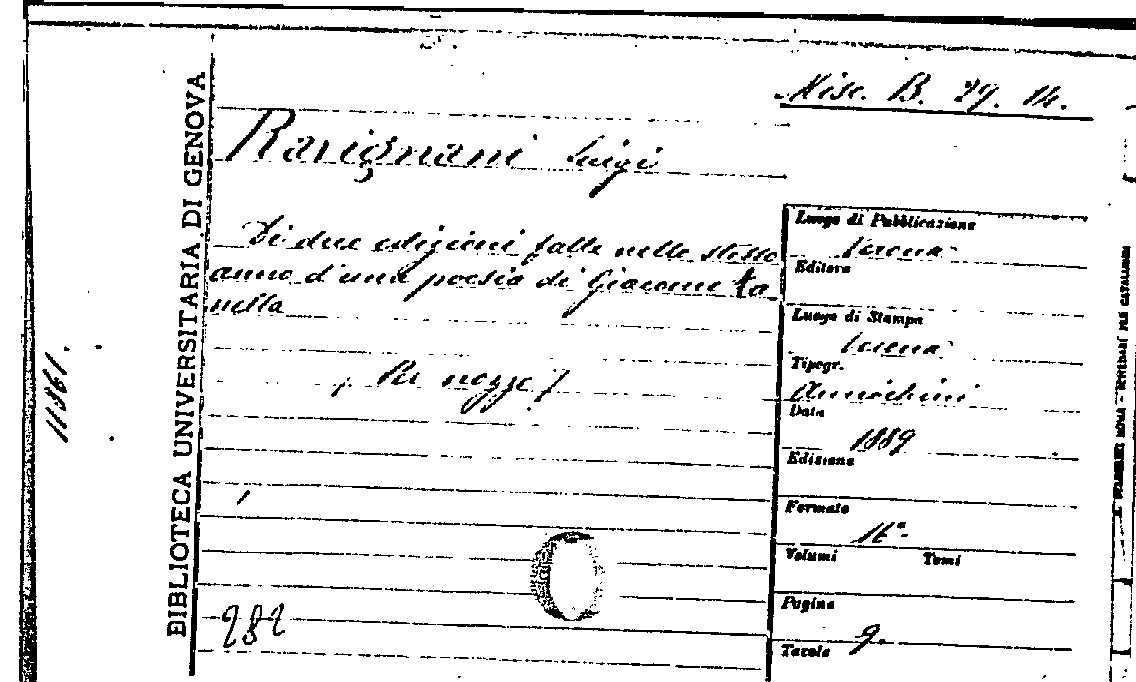 Misc. B. 29. 14.
Ravignani Luigi
Di due edizioni fatte nello stesso
anno d'una poesia di Giacomo Za-
nella
( Per nozze )
282
Luogo di Pubblicazione
Verona
Editore
Luogo di Stampa
Verona
Tipogr.
Annichini
Data
1889
Edizione
Formato
16°
Volumi Tomi
Pagine
9.
Tavole
BIBLIOTECA UNIVERSITARIA DI GENOVA
11861.